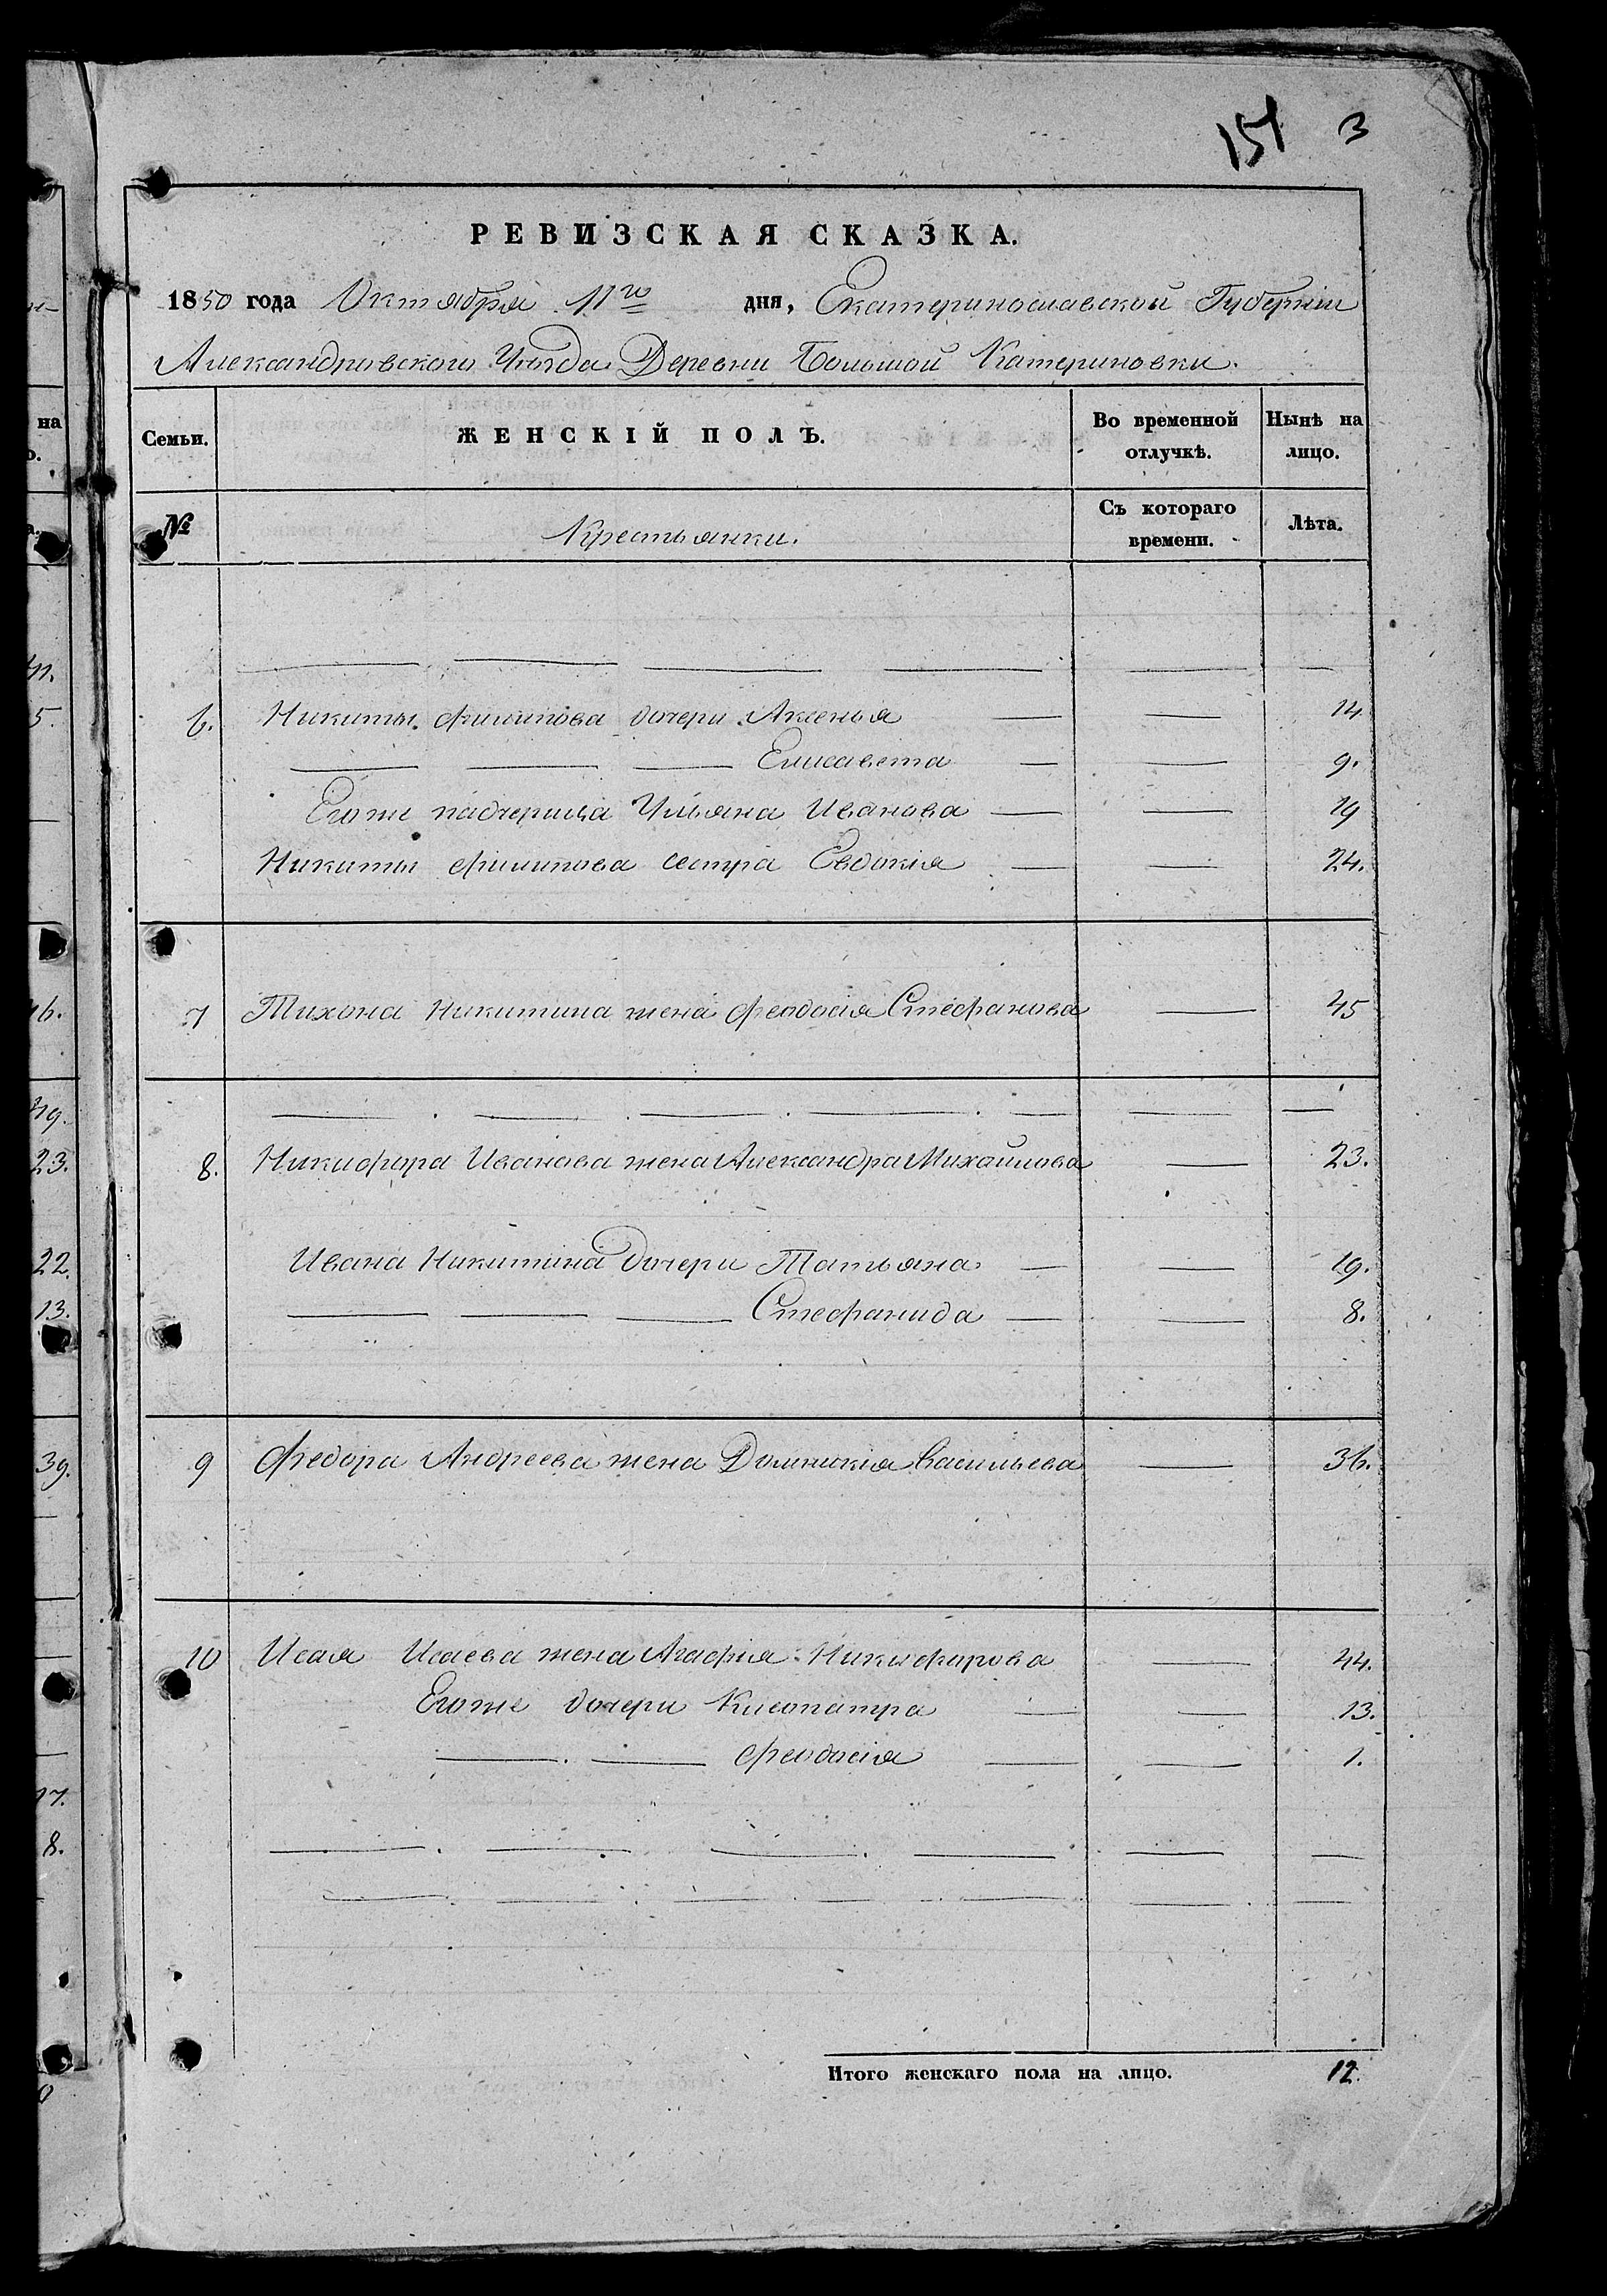 151 3
РЕВИЗСКАЯ СКАЗКА.
1850 года Октября 11го дня, Екатеринославской Губерніи
Александровскаго Уѣзда Деревни Большой Катериновки.
Семьи. ЖЕНСКІЙ ПОЛЪ. Во временной отлучкѣ. Нынѣ на лицо.
№ Крестьянки. Съ котораго времени. Лѣта.
6. Никиты Филипова дочери Аксенья — — 14
— — — Елисавета — — 9.
Егоже падчерица Ульяна Иванова — — 19
Никиты Филипова сестра Евдокія — — 24.
7 Тихона Никитина жена Феодосія Стефанова — 45
8. Никифора Иванова жена Александра Михайлова — 23.
Ивана Никитина дочери Татьяна — — 19.
— — — Стефанида — — 8.
9 Федора Андреева жена Домникія Васильева — 36.
10 Исая Исаева жена Агафія Никифорова — 44.
Егоже дочери Клеопатра — — 13.
— — Феодосія — — 1.
Итого женскаго пола на лицо. 12.
на
5.
46.
23.
22.
13.
39.
17.
8.